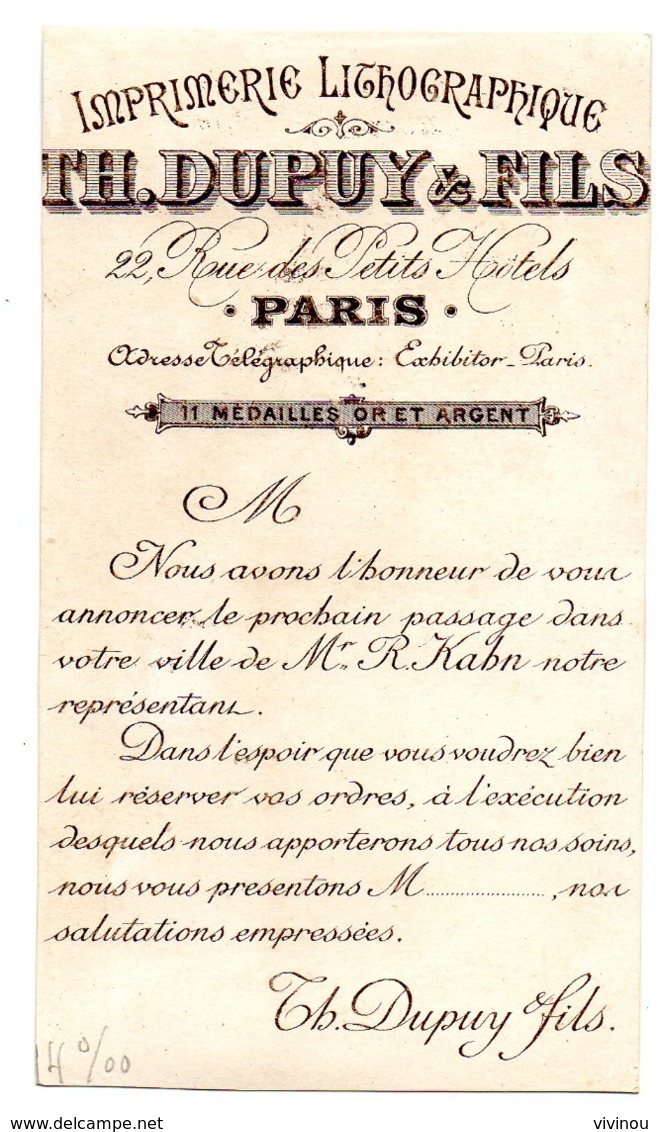 IMPRIMERIE LITHOGRAPHIQUE
TH. DUPUY & FILS
22, Rue des Petits Hôtels
· PARIS ·
Adresse Télégraphique: Exhibitor-Paris.
11 MÉDAILLES OR ET ARGENT
M
Nous avons l'honneur de vous
annoncer le prochain passage dans
votre ville de Mr. R. Kahn notre
représentant.
Dans l'espoir que vous voudrez bien
lui réserver vos ordres, à l'exécution
desquels nous apporterons tous nos soins,
nous vous presentons M........................, nos
salutations empressées.
Th. Dupuy & fils.
14 %00
delcampe.net
vivinou